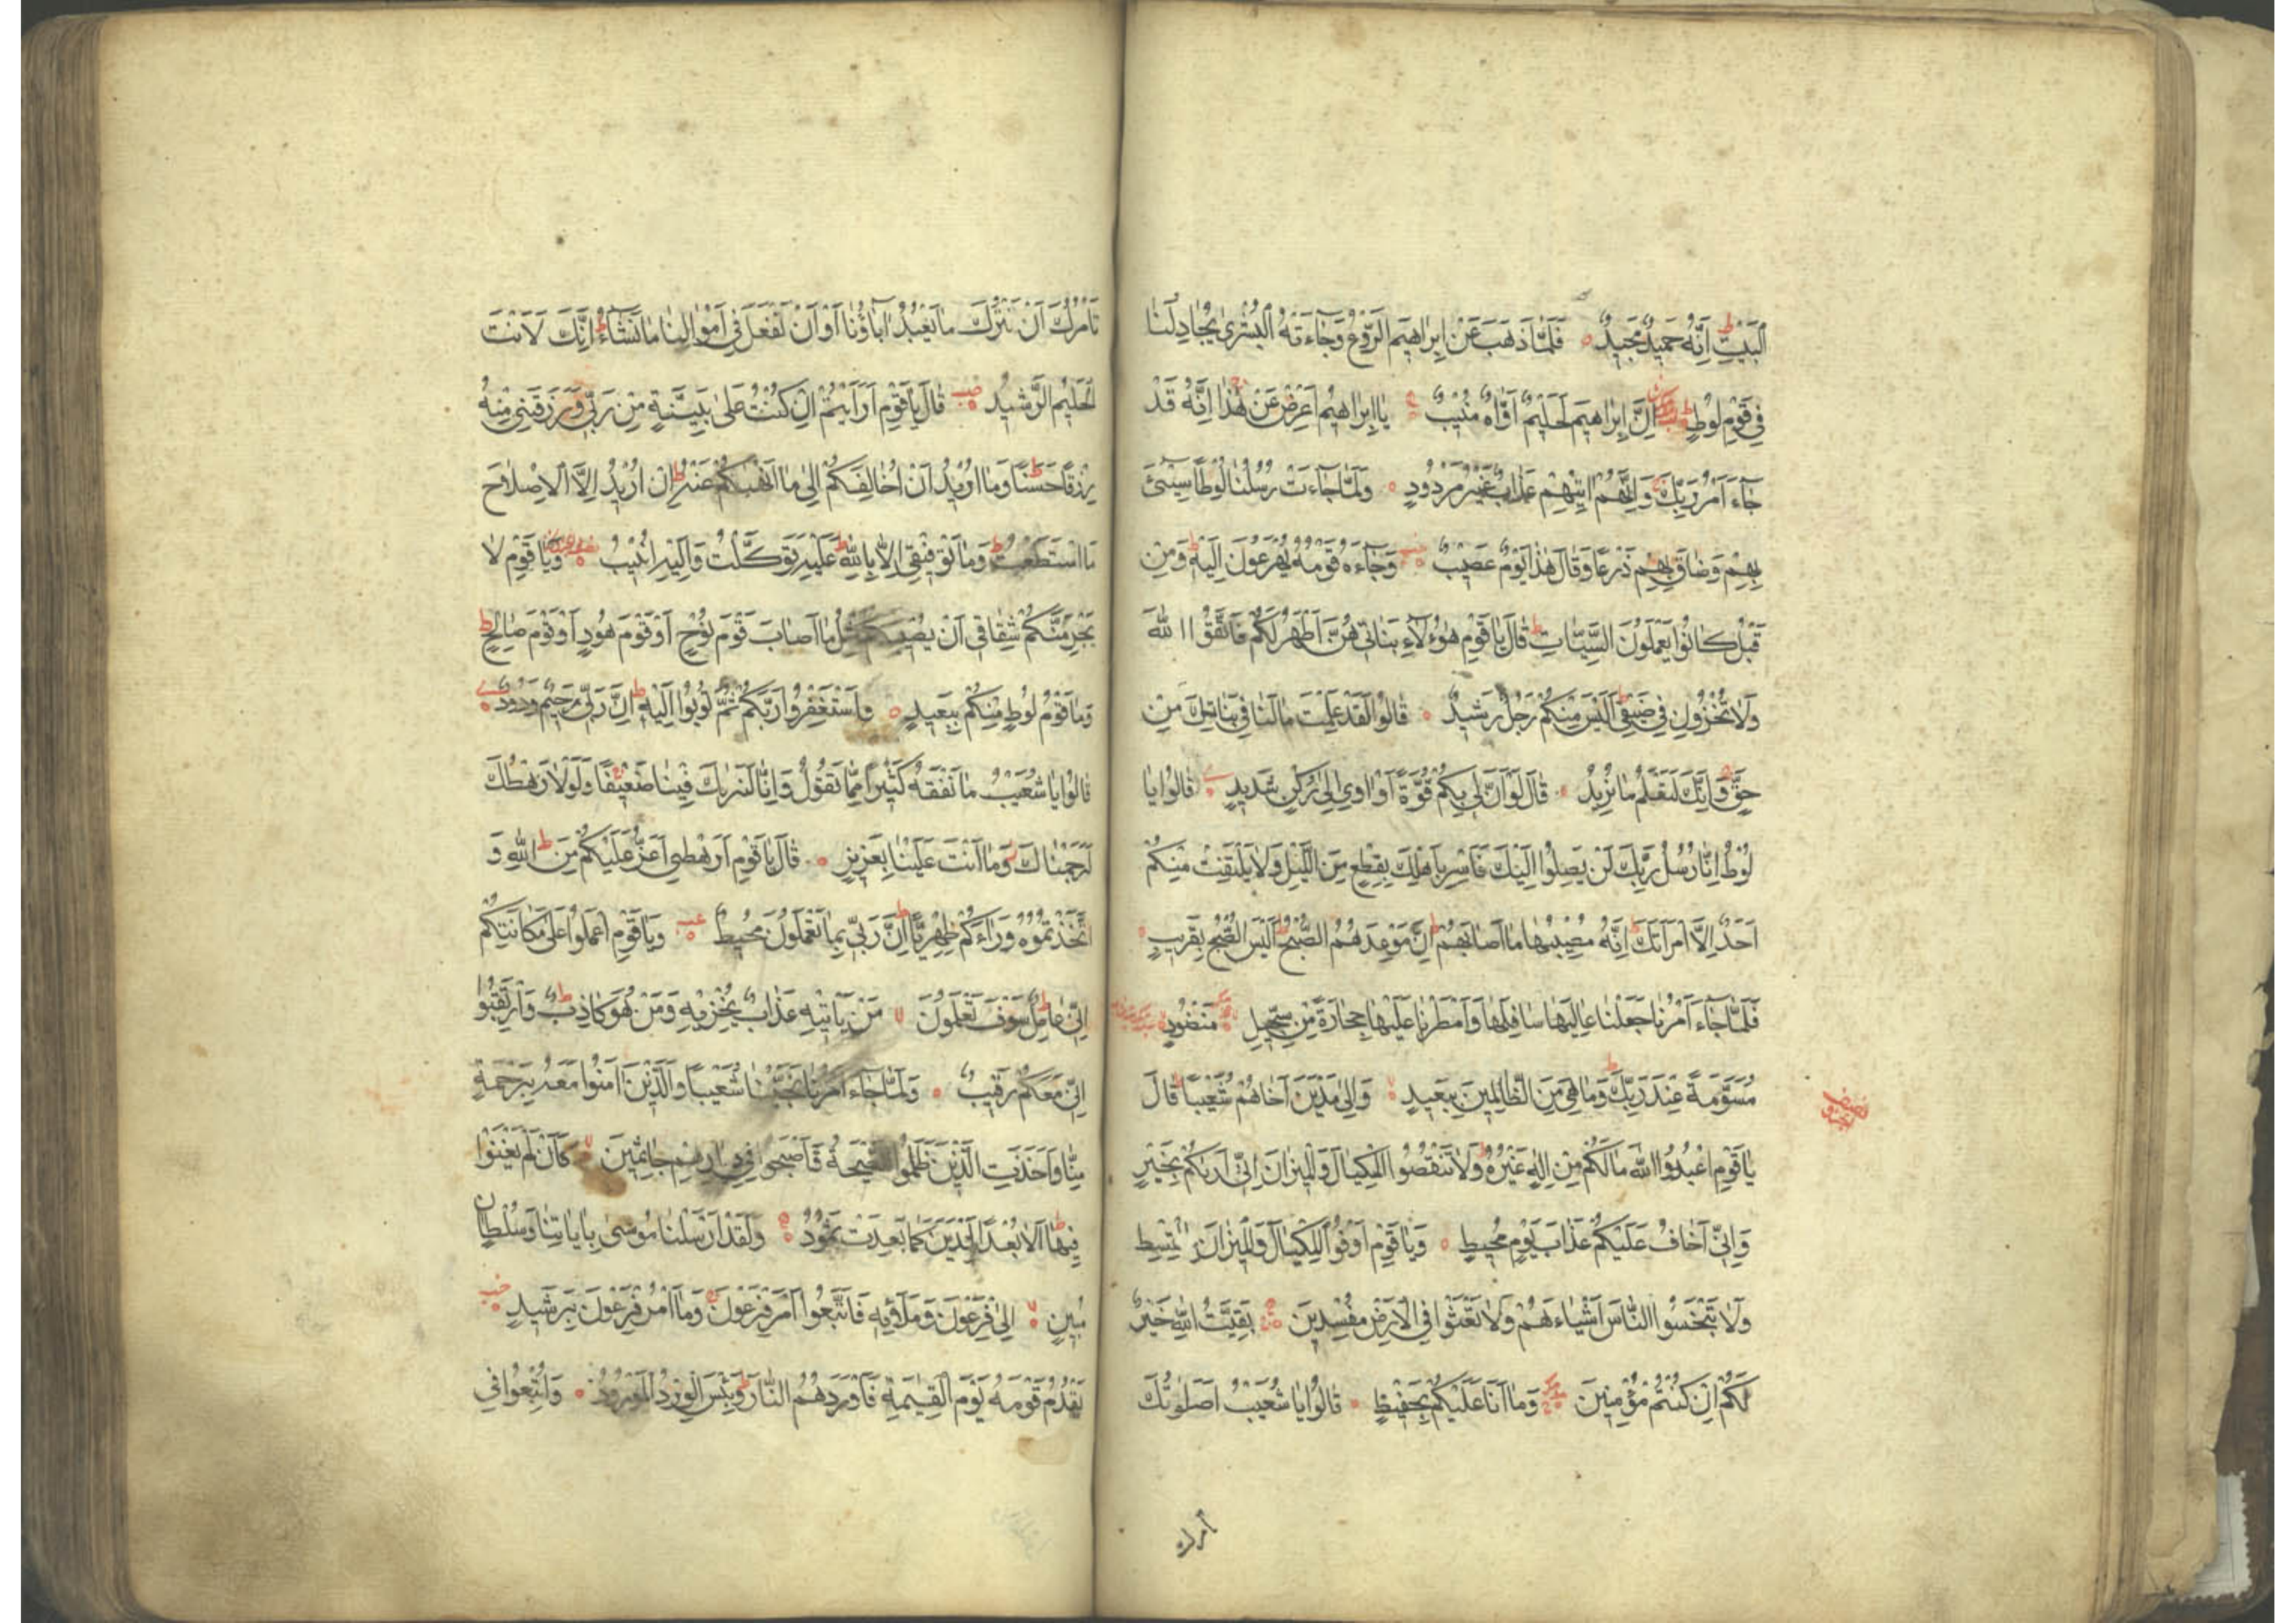 ٱلْبَيْتِ ط اِنَّهُ حَمِيدٌ مَجِيدٌ ه فَلَمَّا ذَهَبَ عَنْ اِبْرَاهِيمَ الرَّوْعُ وَجَاءَتْهُ الْبُشْرٰى يُجَادِلُنَا
فِي قَوْمِ لُوطٍ ط اِنَّ اِبْرَاهِيمَ لَحَلِيمٌ اَوَّاهٌ مُنِيبٌ يَا اِبْرَاهِيمُ اَعْرِضْ عَنْ هٰذَا ج اِنَّهُ قَدْ
جَاءَ اَمْرُ رَبِّكَ وَاِنَّهُمْ اٰتِيهِمْ عَذَابٌ غَيْرُ مَرْدُودٍ ه وَلَمَّا جَاءَتْ رُسُلُنَا لُوطًا سِيئَ
بِهِمْ وَضَاقَ بِهِمْ ذَرْعًا وَقَالَ هٰذَا يَوْمٌ عَصِيبٌ وَجَاءَهُ قَوْمُهُ يُهْرَعُونَ اِلَيْهِ ط وَمِنْ
قَبْلُ كَانُوا يَعْمَلُونَ السَّيِّئَاتِ ط قَالَ يَا قَوْمِ هٰؤُلَاءِ بَنَاتِي هُنَّ اَطْهَرُ لَكُمْ فَاتَّقُوا اللّٰهَ
وَلَا تُخْزُونِ فِي ضَيْفِي ط اَلَيْسَ مِنْكُمْ رَجُلٌ رَشِيدٌ ه قَالُوا لَقَدْ عَلِمْتَ مَا لَنَا فِي بَنَاتِكَ مِنْ
حَقٍّ ج وَاِنَّكَ لَتَعْلَمُ مَا نُرِيدُ ه قَالَ لَوْ اَنَّ لِي بِكُمْ قُوَّةً اَوْ اٰوِي اِلٰى رُكْنٍ شَدِيدٍ قَالُوا يَا
لُوطُ اِنَّا رُسُلُ رَبِّكَ لَنْ يَصِلُوا اِلَيْكَ فَاَسْرِ بِاَهْلِكَ بِقِطْعٍ مِنَ اللَّيْلِ وَلَا يَلْتَفِتْ مِنْكُمْ
اَحَدٌ اِلَّا امْرَاَتَكَ ط اِنَّهُ مُصِيبُهَا مَا اَصَابَهُمْ ط اِنَّ مَوْعِدَهُمُ الصُّبْحُ ط اَلَيْسَ الصُّبْحُ بِقَرِيبٍ ه
فَلَمَّا جَاءَ اَمْرُنَا جَعَلْنَا عَالِيَهَا سَافِلَهَا وَاَمْطَرْنَا عَلَيْهَا حِجَارَةً مِنْ سِجِّيلٍ مَنْضُودٍ
مُسَوَّمَةً عِنْدَ رَبِّكَ ط وَمَا هِيَ مِنَ الظَّالِمِينَ بِبَعِيدٍ وَاِلٰى مَدْيَنَ اَخَاهُمْ شُعَيْبًا ط قَالَ
يَا قَوْمِ اعْبُدُوا اللّٰهَ مَا لَكُمْ مِنْ اِلٰهٍ غَيْرُهُ ط وَلَا تَنْقُصُوا الْمِكْيَالَ وَالْمِيزَانَ اِنِّي اَرٰيكُمْ بِخَيْرٍ
وَاِنِّي اَخَافُ عَلَيْكُمْ عَذَابَ يَوْمٍ مُحِيطٍ ه وَيَا قَوْمِ اَوْفُوا الْمِكْيَالَ وَالْمِيزَانَ بِالْقِسْطِ
وَلَا تَبْخَسُوا النَّاسَ اَشْيَاءَهُمْ وَلَا تَعْثَوْا فِي الْاَرْضِ مُفْسِدِينَ بَقِيَّتُ اللّٰهِ خَيْرٌ
لَكُمْ اِنْ كُنْتُمْ مُؤْمِنِينَ وَمَا اَنَا عَلَيْكُمْ بِحَفِيظٍ ه قَالُوا يَا شُعَيْبُ اَصَلٰوتُكَ
تَأْمُرُكَ اَنْ نَتْرُكَ مَا يَعْبُدُ اٰبَاؤُنَا اَوْ اَنْ نَفْعَلَ فِي اَمْوَالِنَا مَا نَشَاءُ ط اِنَّكَ لَاَنْتَ
الْحَلِيمُ الرَّشِيدُ قَالَ يَا قَوْمِ اَرَاَيْتُمْ اِنْ كُنْتُ عَلٰى بَيِّنَةٍ مِنْ رَبِّي وَرَزَقَنِي مِنْهُ
رِزْقًا حَسَنًا ط وَمَا اُرِيدُ اَنْ اُخَالِفَكُمْ اِلٰى مَا اَنْهٰيكُمْ عَنْهُ ط اِنْ اُرِيدُ اِلَّا الْاِصْلَاحَ
مَا اسْتَطَعْتُ ط وَمَا تَوْفِيقِي اِلَّا بِاللّٰهِ ط عَلَيْهِ تَوَكَّلْتُ وَاِلَيْهِ اُنِيبُ وَيَا قَوْمِ لَا
يَجْرِمَنَّكُمْ شِقَاقِي اَنْ يُصِيبَكُمْ مِثْلُ مَا اَصَابَ قَوْمَ نُوحٍ اَوْ قَوْمَ هُودٍ اَوْ قَوْمَ صَالِحٍ ط
وَمَا قَوْمُ لُوطٍ مِنْكُمْ بِبَعِيدٍ ه وَاسْتَغْفِرُوا رَبَّكُمْ ثُمَّ تُوبُوا اِلَيْهِ ط اِنَّ رَبِّي رَحِيمٌ وَدُودٌ
قَالُوا يَا شُعَيْبُ مَا نَفْقَهُ كَثِيرًا مِمَّا تَقُولُ وَاِنَّا لَنَرٰيكَ فِينَا ضَعِيفًا ج وَلَوْلَا رَهْطُكَ
لَرَجَمْنَاكَ وَمَا اَنْتَ عَلَيْنَا بِعَزِيزٍ ه قَالَ يَا قَوْمِ اَرَهْطِي اَعَزُّ عَلَيْكُمْ مِنَ اللّٰهِ ط وَ
اتَّخَذْتُمُوهُ وَرَاءَكُمْ ظِهْرِيًّا ط اِنَّ رَبِّي بِمَا تَعْمَلُونَ مُحِيطٌ وَيَا قَوْمِ اعْمَلُوا عَلٰى مَكَانَتِكُمْ
اِنِّي عَامِلٌ ط سَوْفَ تَعْلَمُونَ لا مَنْ يَأْتِيهِ عَذَابٌ يُخْزِيهِ وَمَنْ هُوَ كَاذِبٌ ط وَارْتَقِبُوا
اِنِّي مَعَكُمْ رَقِيبٌ ه وَلَمَّا جَاءَ اَمْرُنَا نَجَّيْنَا شُعَيْبًا وَالَّذِينَ اٰمَنُوا مَعَهُ بِرَحْمَةٍ
مِنَّا وَاَخَذَتِ الَّذِينَ ظَلَمُوا الصَّيْحَةُ فَاَصْبَحُوا فِي دِيَارِهِمْ جَاثِمِينَ لا كَاَنْ لَمْ يَغْنَوْا
فِيهَا ط اَلَا بُعْدًا لِمَدْيَنَ كَمَا بَعِدَتْ ثَمُودُ وَلَقَدْ اَرْسَلْنَا مُوسٰى بِاٰيَاتِنَا وَسُلْطَانٍ
مُبِينٍ لا اِلٰى فِرْعَوْنَ وَمَلَائِهِ فَاتَّبَعُوا اَمْرَ فِرْعَوْنَ ج وَمَا اَمْرُ فِرْعَوْنَ بِرَشِيدٍ
يَقْدُمُ قَوْمَهُ يَوْمَ الْقِيٰمَةِ فَاَوْرَدَهُمُ النَّارَ ط وَبِئْسَ الْوِرْدُ الْمَوْرُودُ ه وَاُتْبِعُوا فِي